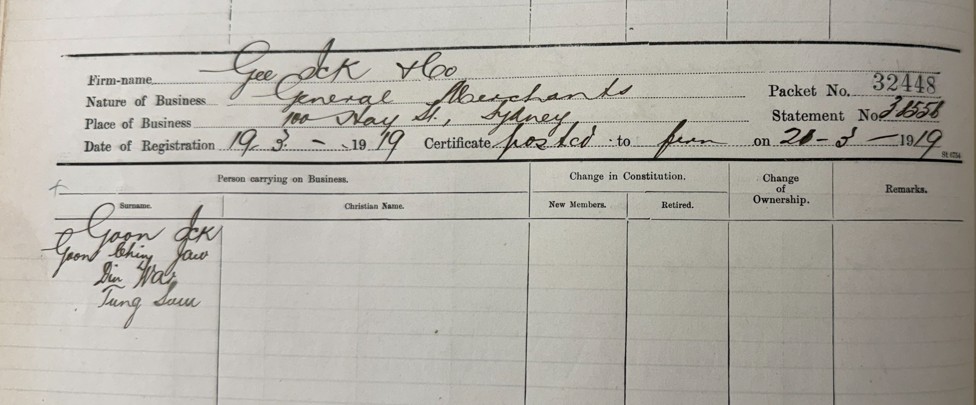 Firm-name Gee Ick & Co
Packet No. 32448
Nature of Business General Merchants
Statement No. 31556
Place of Business 100 Hay St., Sydney
Date of Registration 19. 3 - 1919 Certificate posted to firm on 20-3-1919
St 6754
Person carrying on Business.
Change in Constitution.
Change of Ownership.
Remarks.
Surname.
Christian Name.
New Members.
Retired.
Goon Ick
Goon Ching Jaw
Din Wah
Tung Sam